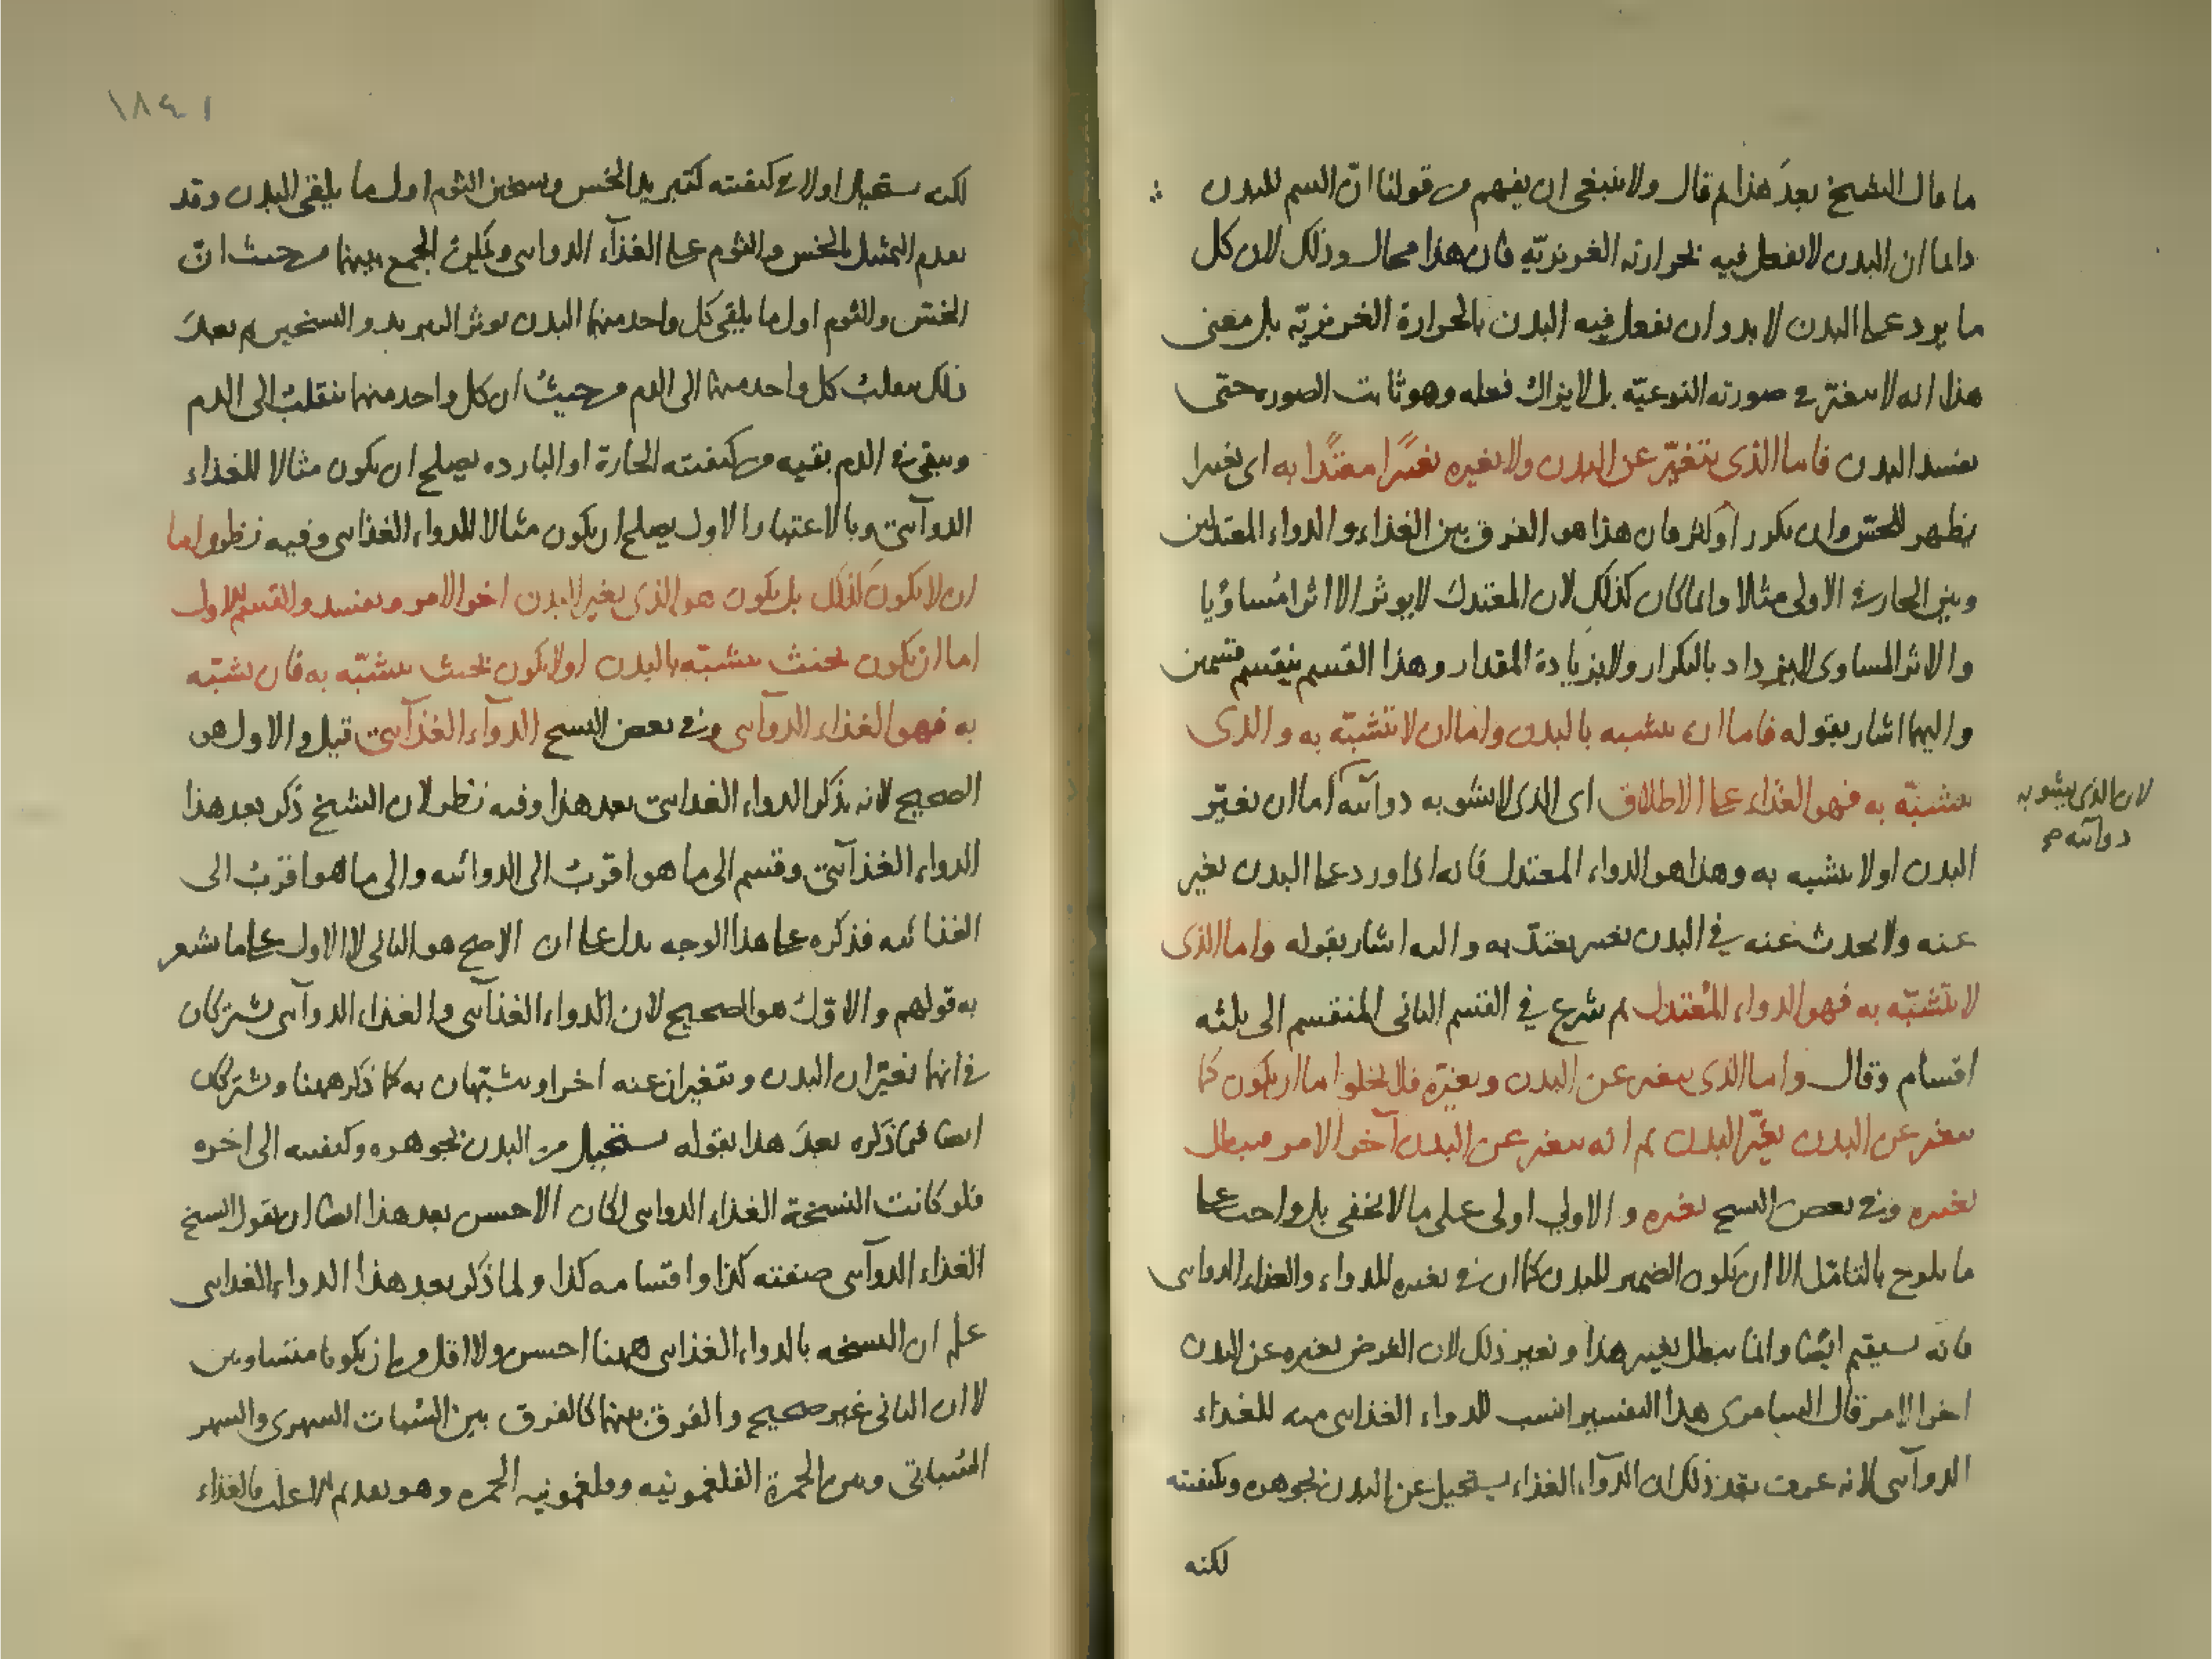 ما قال الشيخ بعد هذا ثم قال ولا ينبغى ان يفهم من قولنا انّ السم للبدن
دايما ان البدن لا يفعل فيه بحرارته الغريزيّه فان هذا محال وذلك لان كل
ما يرد على البدن لا بد وان يفعل فيه البدن بالحرارة الغريزيّه بل معنى
هذا انه لا يتغيّر فى صورته النوعيّه بل لا يزال فعله وهو ثابت الصوره حتّى
يفسد البدن فاما الذى يتغيّر عن البدن ولا يغيره تغيّرًا معتدًا به اى تغيرا
يظهر للحسّ وان تكرر او كثر فان هذا هو الفرق بين الغذاء والدواء المعتدلين
وبين الحار فى الاولى مثالا وانما كان كذلك لان المعتدل لا يوثر الا اثرا مُساوٍيا
والاثر المساوى لا يزداد بالتكرار ولا بزيادة المقدار وهذا القسم ينقسم قسمين
واليهما اشار بقوله فاما ان يتشبه بالبدن واما ان لا يتشبّه به والذى
يتشبّه به فهو الغذاء على الاطلاق اى الذى لا يشوبه دوائيّه اما ان يغيّر
لان الذى يشوبه
دوائيه
البدن او لا يتشبه به وهذا هو الدواء المعتدل فانه اذا ورد على البدن تغير
عنه ولا يحدث عنه فى البدن تغير يعتدّ به واليه اشار بقوله واما الذى
لا يتشبّه به فهو الدواء المُعتدل ثم شرع فى القسم الثانى المنقسم الى ثلثه
اقسام وقال واما الذى يتغير عن البدن ويغيّره فلا يخلوا اما ان يكون كما
يتغير عن البدن يغيّر البدن ثم انه يتغير عن البدن آخر الامر فيبطل
تغيره وفى بعض النسخ تغيره والاولى اولى على ما لا يخفى بل واجب على
ما يلوح بالتامّل الا ان يكون الضمير للبدن كما ان فى تغيره للدواء والغذاء الدوائى
فانه سيقيم ايضًا وانما يبطل تغير هذا وتغير ذلك لان الفرض تغيره عن البدن
اخر الامر قال السامرى هذا التفسير انسب للدواء الغذائى منه للغذاء
الدوآئى لانه عرفت بعد ذلك ان الدوآء الغذاء يستحيل عن البدن بجوهره وبكيفيته
لكنه
لكنه يستحيل اولا فى كيفيته كتبريد الخس وتسخين الثوم اول ما يلقى البدن وقد
تقدم التمثيل بالخس والثوم على الغذآء الدوائى ويمكن الجمع بينهما من حيث انّ
الخسّ والثوم اول ما يلقى كل واحد منهما البدن يوثر التبريد والتسخين ثم بعدَ
ذلك ينقلب كل واحد منهما الى الدم من حيثُ ان كل واحد منهما ينقلب الى الدم
ويبقى فى الدم بقيه من كيفيته الحارة او البارده يصلح ان يكون مثالا للغذاء
الدوآئى وبالاعتبار الاول يصلح ان يكون مثالا للدواء الغذائى وفيه نظر واما
ان لا يكون كذلك بل يكون هو الذى يغير البدن اخر الامر ويفسد والقسم الاول
اما ان يكون بحيث يتشبّه بالبدن او لا يكون بحيث يتشبّه به فان تشبّه
به فهو الغذاء الدوآئى وفى بعض النسخ الدوآء الغذآئى قيل والاول هو
الصحيح لانه يذكر الدواء الغذائى بعد هذا وفيه نظر لان الشيخ ذكر بعد هذا
الدواء الغذآئى وقسم الى ما هو اقرب الى الدوائيه والى ما هو اقرب الى
الغذائيه فذكره على هذا الوجه يدل على ان الاصح هو الثانى لا الاول على ما يشعر
به قولهم والاوّل هو الصحيح لان الدواء الغذآئى والغذاء الدوآئى يشتركان
فى انهما يغيّران البدن ويتغيران عنه اخرا ويشتبهان به كما ذكر ههنا ويشتركان
ايضا فيما ذكره بعدَ هذا بقوله يستحيل من البدن بجوهره وكيفيته الى اخره
فلو كانت النسخة الغذاء الدوائى لكان الاحسن بعد هذا ايضا ان يقول الشيخ
الغذاء الدوآئى صفته كذا واقسامه كذا ولما ذكر بعد هذا الدواء الغذائى
علم ان النسخه بالدواء الغذائى ههنا احسن ولا اقل من ان يكونا متساويين
لا ان الثانى غير صحيح والفرق بينهما كالفرق بين السُبات السهرى والسهر
السُباتى وبين الحمرة الفلغمونيه وفلغمونيه الحمره وهو بعد ثم الاغلب فالغذاء
١٨٤١